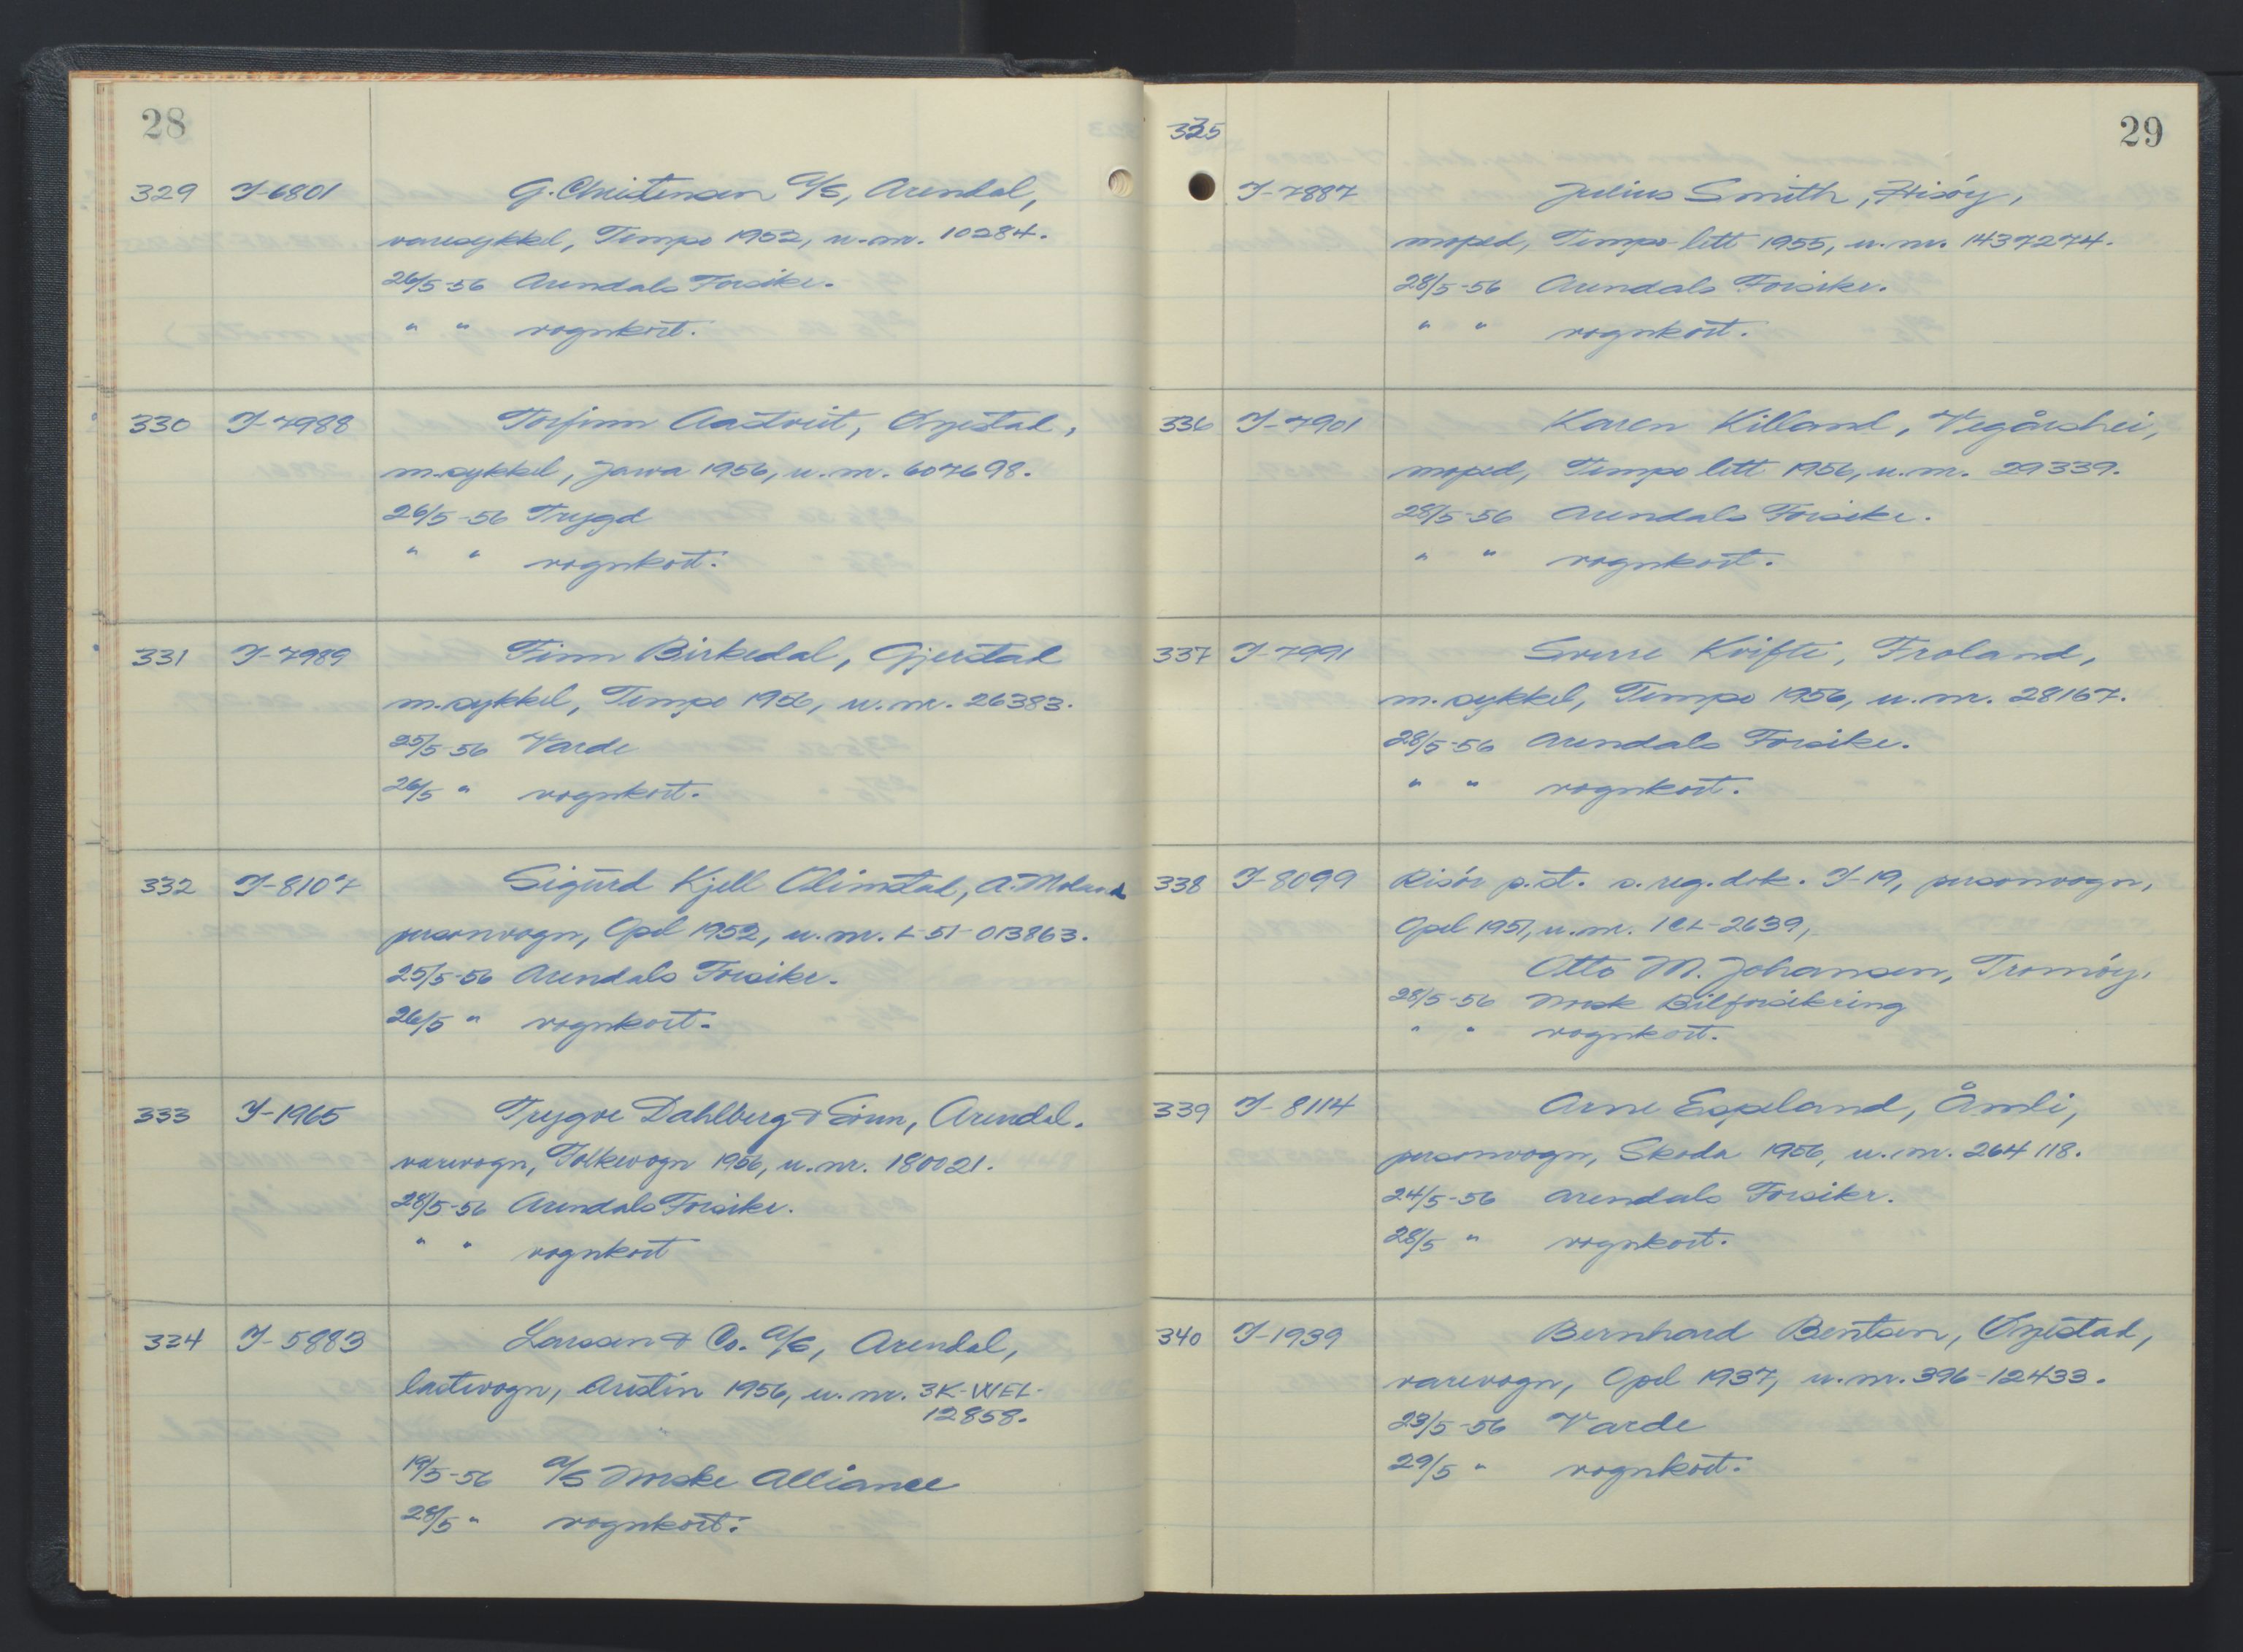 28
329 I-6801 G. Christensen A/S, Arendal,
varesykkel, Tempo 1952, u.nr. 10284.
26/5-56 Arendals Forsikr.
" " vognkort.
330 I-7988 Torfinn Aastveit, Øyestad,
m.sykkel, Jawa 1956, u.nr. 607698.
26/5-56 Trygd
" " vognkort.
331 I-7989 Finn Birkedal, Gjerstad
m.sykkel, Tempo 1956, u.nr. 26383.
25/5-56 Varde
26/5 " vognkort.
332 I-8107 Sigurd Kjell Olimstad, A. Moland
personvogn, Opel 1952, u.nr. L-51-013863.
25/5-56 Arendals Forsikr.
26/5 " vognkort.
333 I-1965 Trygve Dahlberg & Sønn, Arendal.
varevogn, Folkevogn 1956, u.nr. 180021.
28/5-56 Arendals Forsikr.
" " vognkort
334 I-5883 Larssen & Co. A/S, Arendal,
lastevogn, Austin 1956, u.nr. 3K-WEL-
12858.
19/5-56 A/S Norske Alliance
28/5 " vognkort.
29
335 I-7887 Julius Smith, Hisøy,
moped, Tempo lett 1955, u.nr. 1437274.
28/5-56 Arendals Forsikr.
" " vognkort.
336 I-7901 Karen Killand, Vegårshei,
moped, Tempo lett 1956, u.nr. 29339.
28/5-56 Arendals Forsikr.
" " vognkort.
337 I-7991 Sverre Kvifte, Froland,
m.sykkel, Tempo 1956, u.nr. 28167.
28/5-56 Arendals Forsikr.
" " vognkort.
338 I-8099 Risør p.st. s.reg.dok. I-19, personvogn,
Opel 1951, u.nr. 1CL-2639,
Otto M. Johansen, Tromøy.
28/5-56 Norsk Bilforsikring
" " vognkort.
339 I-8114 Arne Espeland, Åmli,
personvogn, Skoda 1956, u.nr. 264118.
24/5-56 Arendals Forsikr.
28/5 " vognkort.
340 I-1939 Bernhard Bentsen, Øyestad,
varevogn, Opel 1937, u.nr. 396-12433.
23/5-56 Varde
29/5 " vognkort.